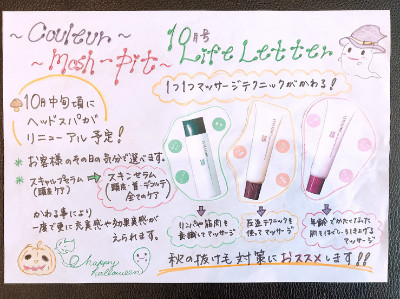 ～Couleur～
～Mosh-pit～
10月号
Life Letter
1つ1つマッサージテクニックがかわる!
10月中旬頃に
ヘッドスパが
リニューアル予定!
* お客様のその日の気分で選べます。
* スキャルプセラム(頭皮ケア)
スキンセラム
(頭皮・首・デコルテ
全てのケア)
かわる事により
一度で更に充実感や効果実感が
えられます。
リンパや筋肉を
意識してマッサージ
圧迫テクニックを
使ってマッサージ
年齢でかたくなった
筋をほぐし、引き上げる
マッサージ
秋の抜け毛対策におススメします!!
happy
halloween